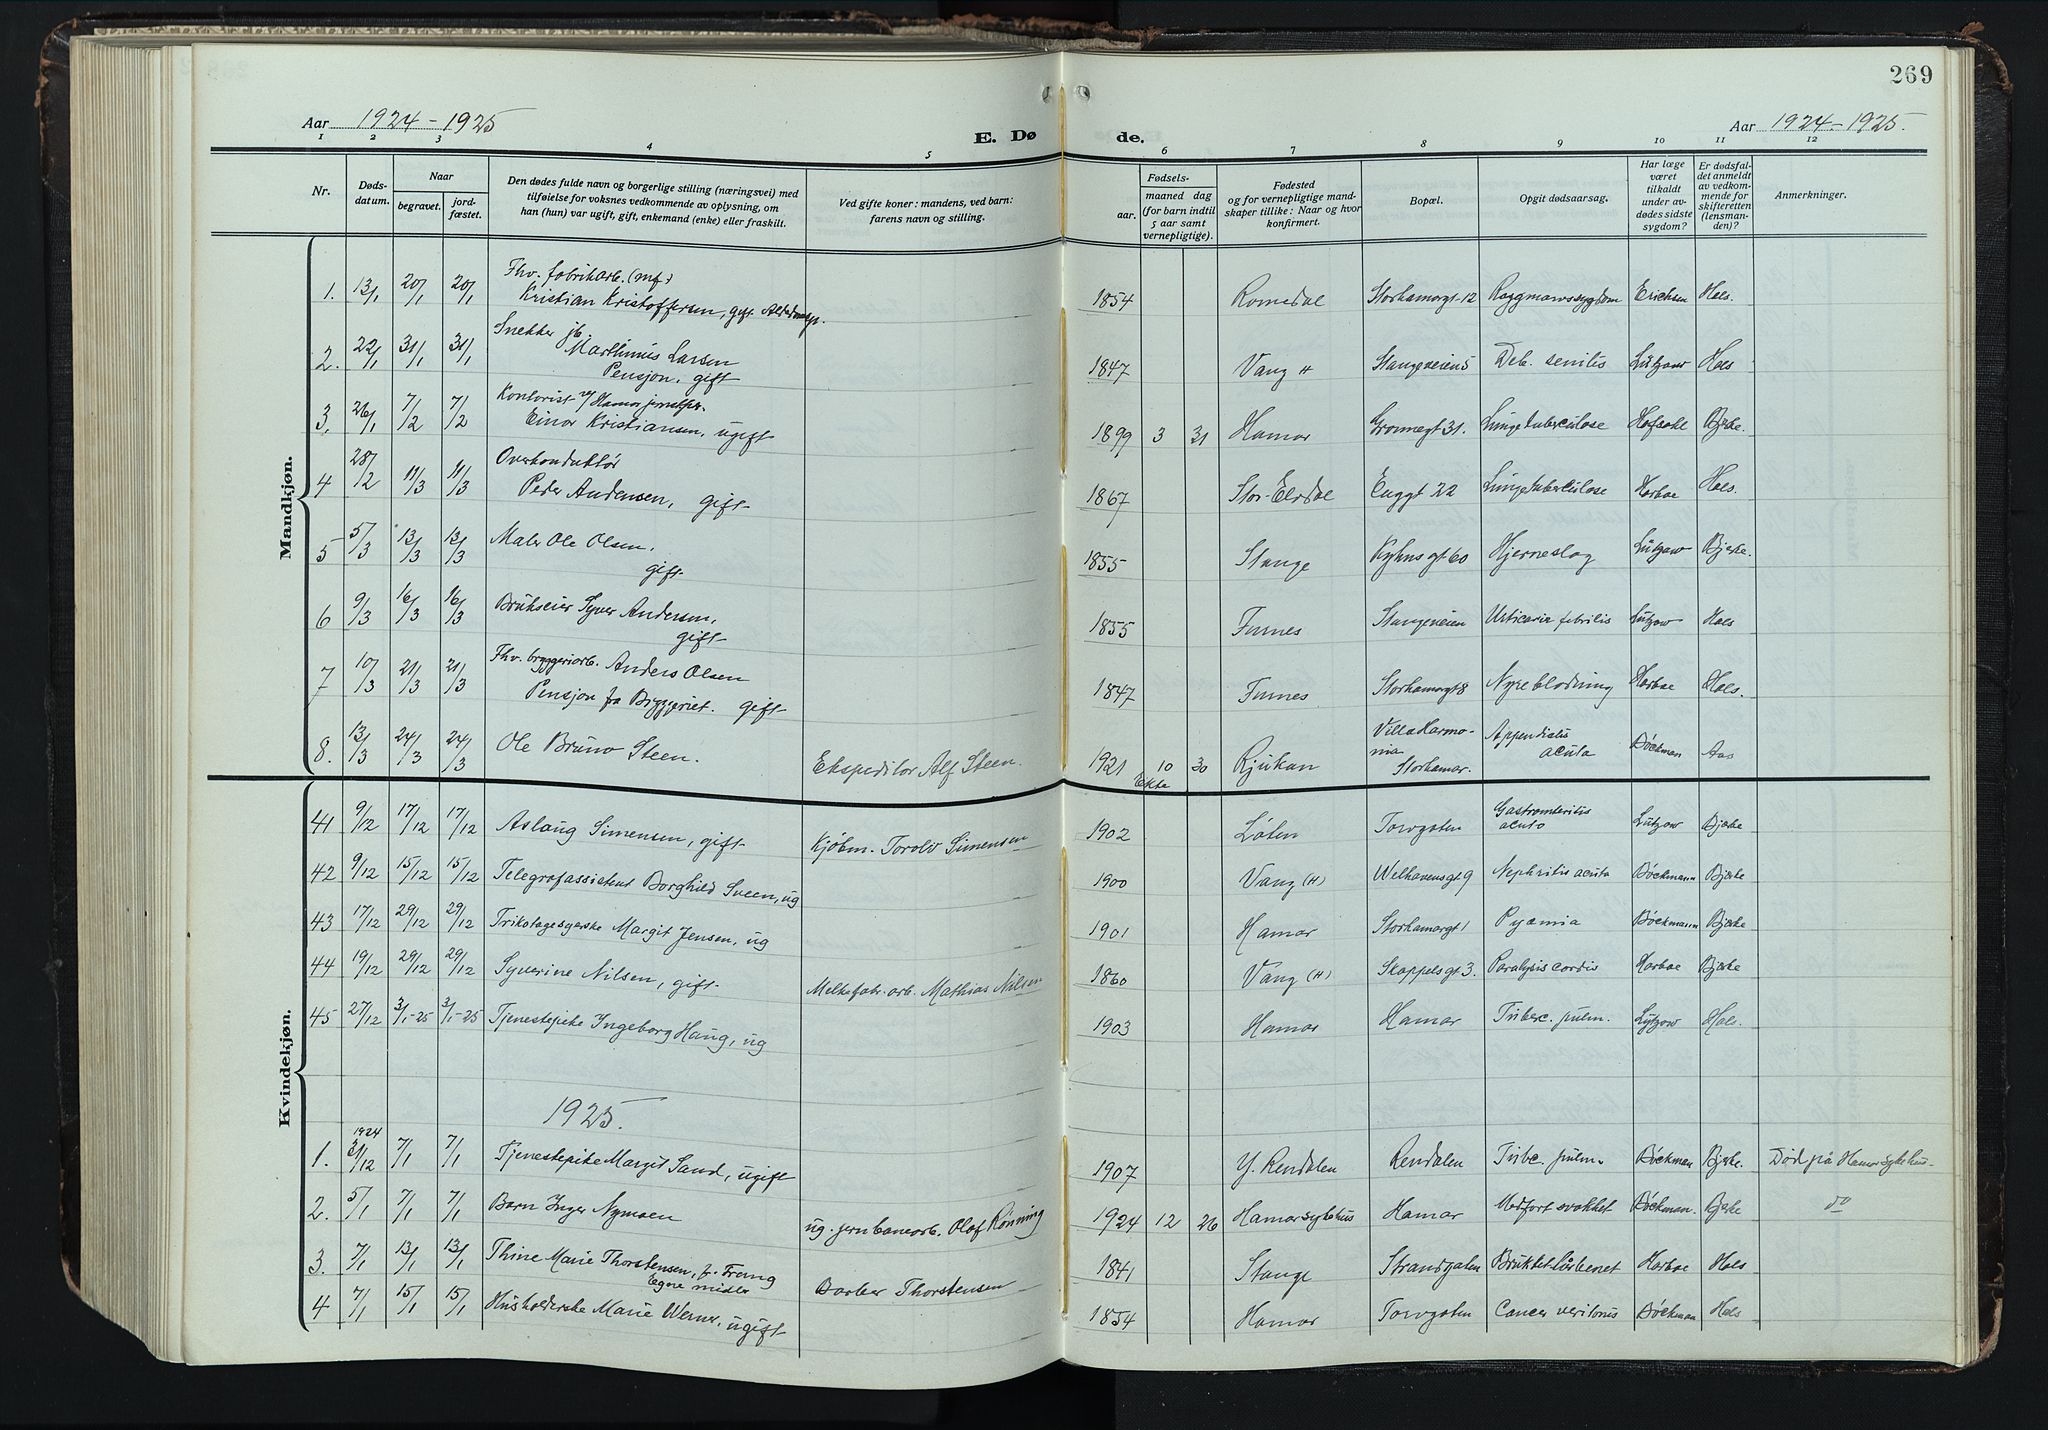 269
Aar 1924-1925
E. Døde.
Aar 1924-1925.
1 2 3 4 5 6 7 8 9 10 11 12
Nr.
Dødsdatum.
Naar
begravet.
jordfæstet.
Den dødes fulde navn og borgerlige stilling (næringsvei) med
tilføielse for voksnes vedkommende av oplysning, om
han (hun) var ugift, gift, enkemand (enke) eller fraskilt.
Ved gifte koner: mandens, ved barn:
farens navn og stilling.
Fødsels-
aar.
maaned dag
(for barn indtil
5 aar samt
vernepligtige).
Fødested
og for vernepligtige mandskaper tillike: Naar og hvor
konfirmert.
Bopæl.
Opgit dødsaarsag.
Har læge
været
tilkaldt
under avdødes sidste
sygdom?
Er dødsfaldet anmeldt
av vedkommende for
skifteretten
(lensmanden)?
Anmerkninger.
Mandkjøn.
1. 13/1 20/1 20/1 Fhv. fabrikarb. (mf.)
Kristian Kristoffersen, gift. 1854 Romedal Storhamargt 12 Ryggmarvssygdom Erichsen Hols.
2. 22/1 31/1 31/1 Snekker jb
Marthinus Larsen
Pensjon. gift 1847 Vang H Stangeveien 5 Deb. senilis Lützow Hols
3. 26/1 7/2 7/2 Kontorist v/ Hamar jernstøp.
Einar Kristiansen, ugift 1899 3 31 Hamar Grønnegt 31. Lungetuberculose Hofsøhl Bjerke.
4 28/2 11/3 11/3 Overkonduktør
Peder Andersen, gift 1867 Stor-Elvdal Enggt 22 Lungetuberculose Harboe Hols.
5 5/3 13/3 13/3 Maler Ole Olsen.
gift 1855 Stange Kyhnsgt 60 Hjerneslag Lützow Bjerke.
6 9/3 16/3 16/3 Brukseier Syver Andersen,
gift 1855 Furnes Stangeveien Urticaria febrilis Lützow Hols
7 10/3 21/3 21/3 Fhv. bryggeriarb. Anders Olsen
Pensjon fra Bryggeriet. gift 1847 Furnes Storhamargt 8 Nyreblødning Harboe Hols.
8. 13/3 24/3 24/3 Ole Bruno Steen. Ekspeditør Alf Steen. 1921 10 30 Ekte Rjukan Villa Harmonia Storhamar. Appendicitis acuta Bøckman Aas
Kvindekjøn.
41 9/12 17/12 17/12 Aslaug Simensen, gift Kjøbm. Torolv Simensen 1902 Løten Torvgaten Gastroenteritis acuta Lützow Bjerke
42 9/12 15/12 15/12 Telegrafassistent Borghild Sveen, ug 1900 Vang (H) Welhavensgt 9 Nephritis acuta Bøckmann Bjerke
43 17/12 29/12 29/12 Trikotagesyerske Margit Jensen, ug 1901 Hamar Storhamargt 1 Pyæmia Bøckmann Bjerke
44 19/12 29/12 29/12 Syverine Nilsen, gift Melkefabr. arb. Mathias Nilsen 1860 Vang (H) Skappelsgt 3. Paralysis cordis Harboe Bjerke
45 27/12 3/1-25 3/1-25 Tjenestepike Ingeborg Haug, ug 1903 Hamar Hamar Tuberc. pulm. Lützow Hols.
1925.
1. 1924 31/12 7/1 7/1 Tjenestepike Margit Sand, ugift 1907 Y. Rendalen Rendalen Tubc. pulm. Bøckman Bjerke. Død på Hamar sykehus
2. 5/1 7/1 7/1 Barn Inger Nymoen ug. jernbanearb. Olaf Rønning 1924 12 26 Hamar sykehus Hamar Medfødt svakhet Bøckman. Bjerke do
3. 7/1 13/1 13/1 Thine Marie Thorstensen, f. Frang
Egne midler Barber Thorstensen 1841 Stange Strandgaten Brukket lårbenet Harboe Hols
4 7/1 15/1 15/1 Husholderske Marie Werner, ugift 1854 Hamar Torvgaten Cancer Bøckman Hols